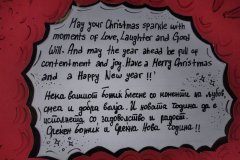 May your Christmas sparkle with
moments of Love, Laughter and Good
Will. And may the year ahead be full of
contentment and joy. Have a Merry Christmas
and a Happy New year !!'
Нека вашиот Божиќ блесне со моменти на љубов,
смеа и добра волја. И новата година да е
исполнета со задоволство и радост.
Среќен Божиќ и Среќна Нова Година !!